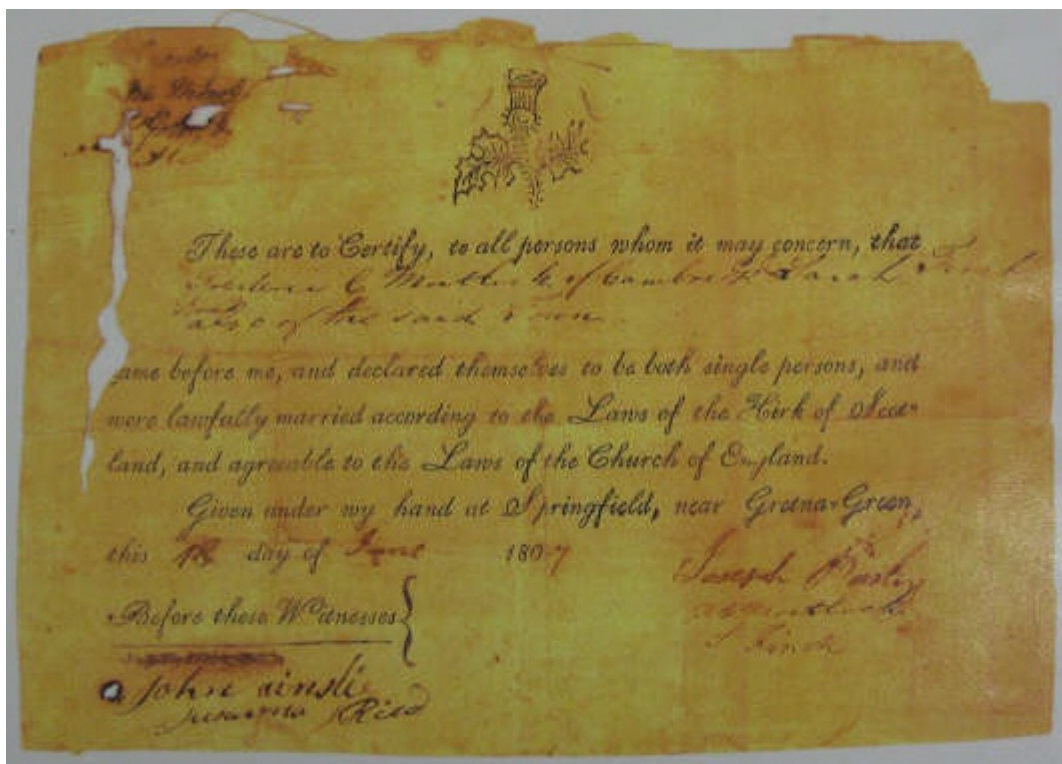 These are to Certify, to all persons whom it may concern, that
of Sarah Finch
also of the said Town
ame before me, and declared themselves to be both single persons, and
were lawfully married according to the Laws of the Kirk of Scot-
land, and agreeable to the Laws of the Church of England.
Given under my hand at Springfield, near Gretna-Green,
this 18 day of June 1807
Joseph Pasley
S Finch
Before these Witnesses
John ainsli